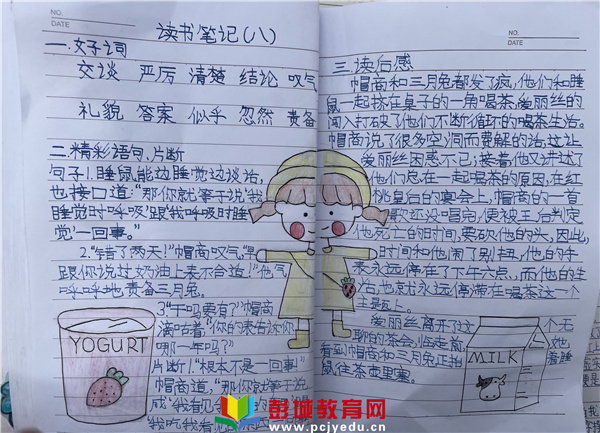 NO.
DATE
读书笔记(八)
一.好词
交谈 严厉 清楚 结论 叹气
礼貌 答案 似乎 忽然 责备
二.精彩语句,片断
句子1.睡鼠能边睡觉边谈话,
也接口道:“那你就等于说‘我
睡觉时呼吸’跟‘我呼吸时睡
觉’一回事。”
2.“错了两天!”帽商叹气,“早
跟你说过奶油上表不合适!”他气
呼呼地责备三月兔。
3.“干吗要有?”帽商
嘀咕着“你的表告诉你
哪一年吗?”
片断1.“根本不是一回事!”
帽商道,“那你就等于说
成‘我看见
‘我吃我看见
YOGURT
NO.
DATE
三.读后感
帽商和三月兔都发了疯,他们和睡
鼠一起挤在桌子的一角喝茶,爱丽丝的
闯入打破了他们不断循环的喝茶生活。
帽商说了很多空洞而费解的话,这让
爱丽丝困惑不已;接着,他又讲述了
他们总在一起喝茶的原因,在红
桃皇后的宴会上,帽商的一首
歌还没唱完,便被王后判定
他死亡的时间,要砍他的头,因此,
时间和他闹了别扭,他的手
表永远停在了下午六点,而他的生
活,也就永远停滞在喝茶这一个
主题上。
爱丽丝离开了这个无
聊的茶会,临走前,她
看到帽商和三月兔正拍着睡
鼠往茶壶里塞。
MILK
彭城教育网
www.pcjyedu.cn